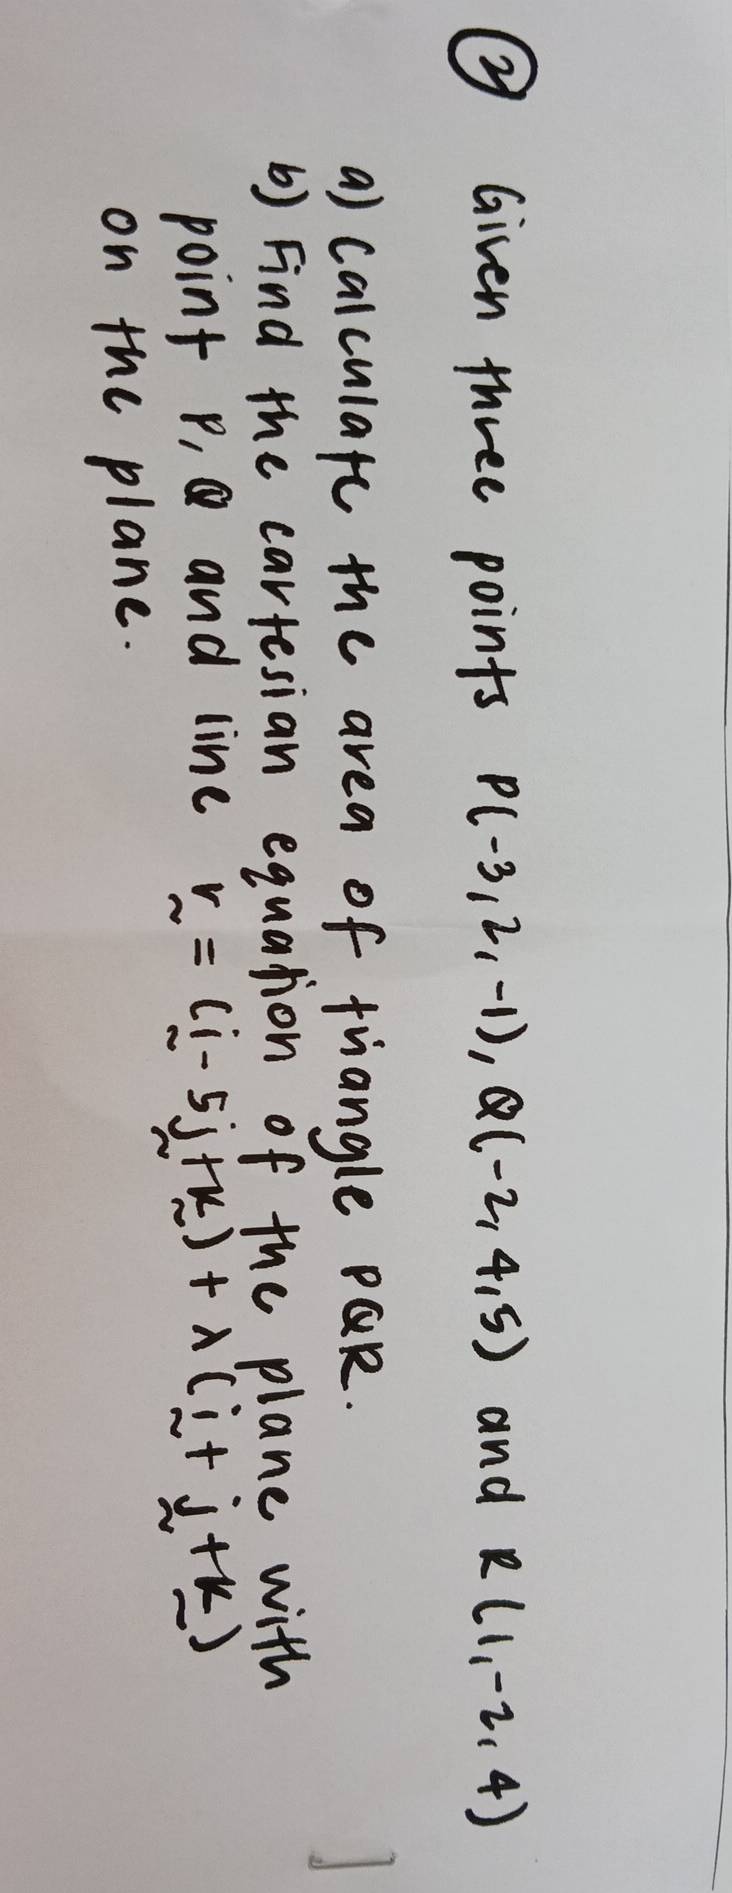 ② Given three points P(-3,2,-1), Q(-2,4,5) and R(1,-2,4)
a) Calculate the area of triangle PQR.
b) Find the cartesian equation of the plane with
point P, Q and line r̰ = (ḭ - 5j̰ + k̰) + λ(ḭ + j̰ + k̰)
on the plane.